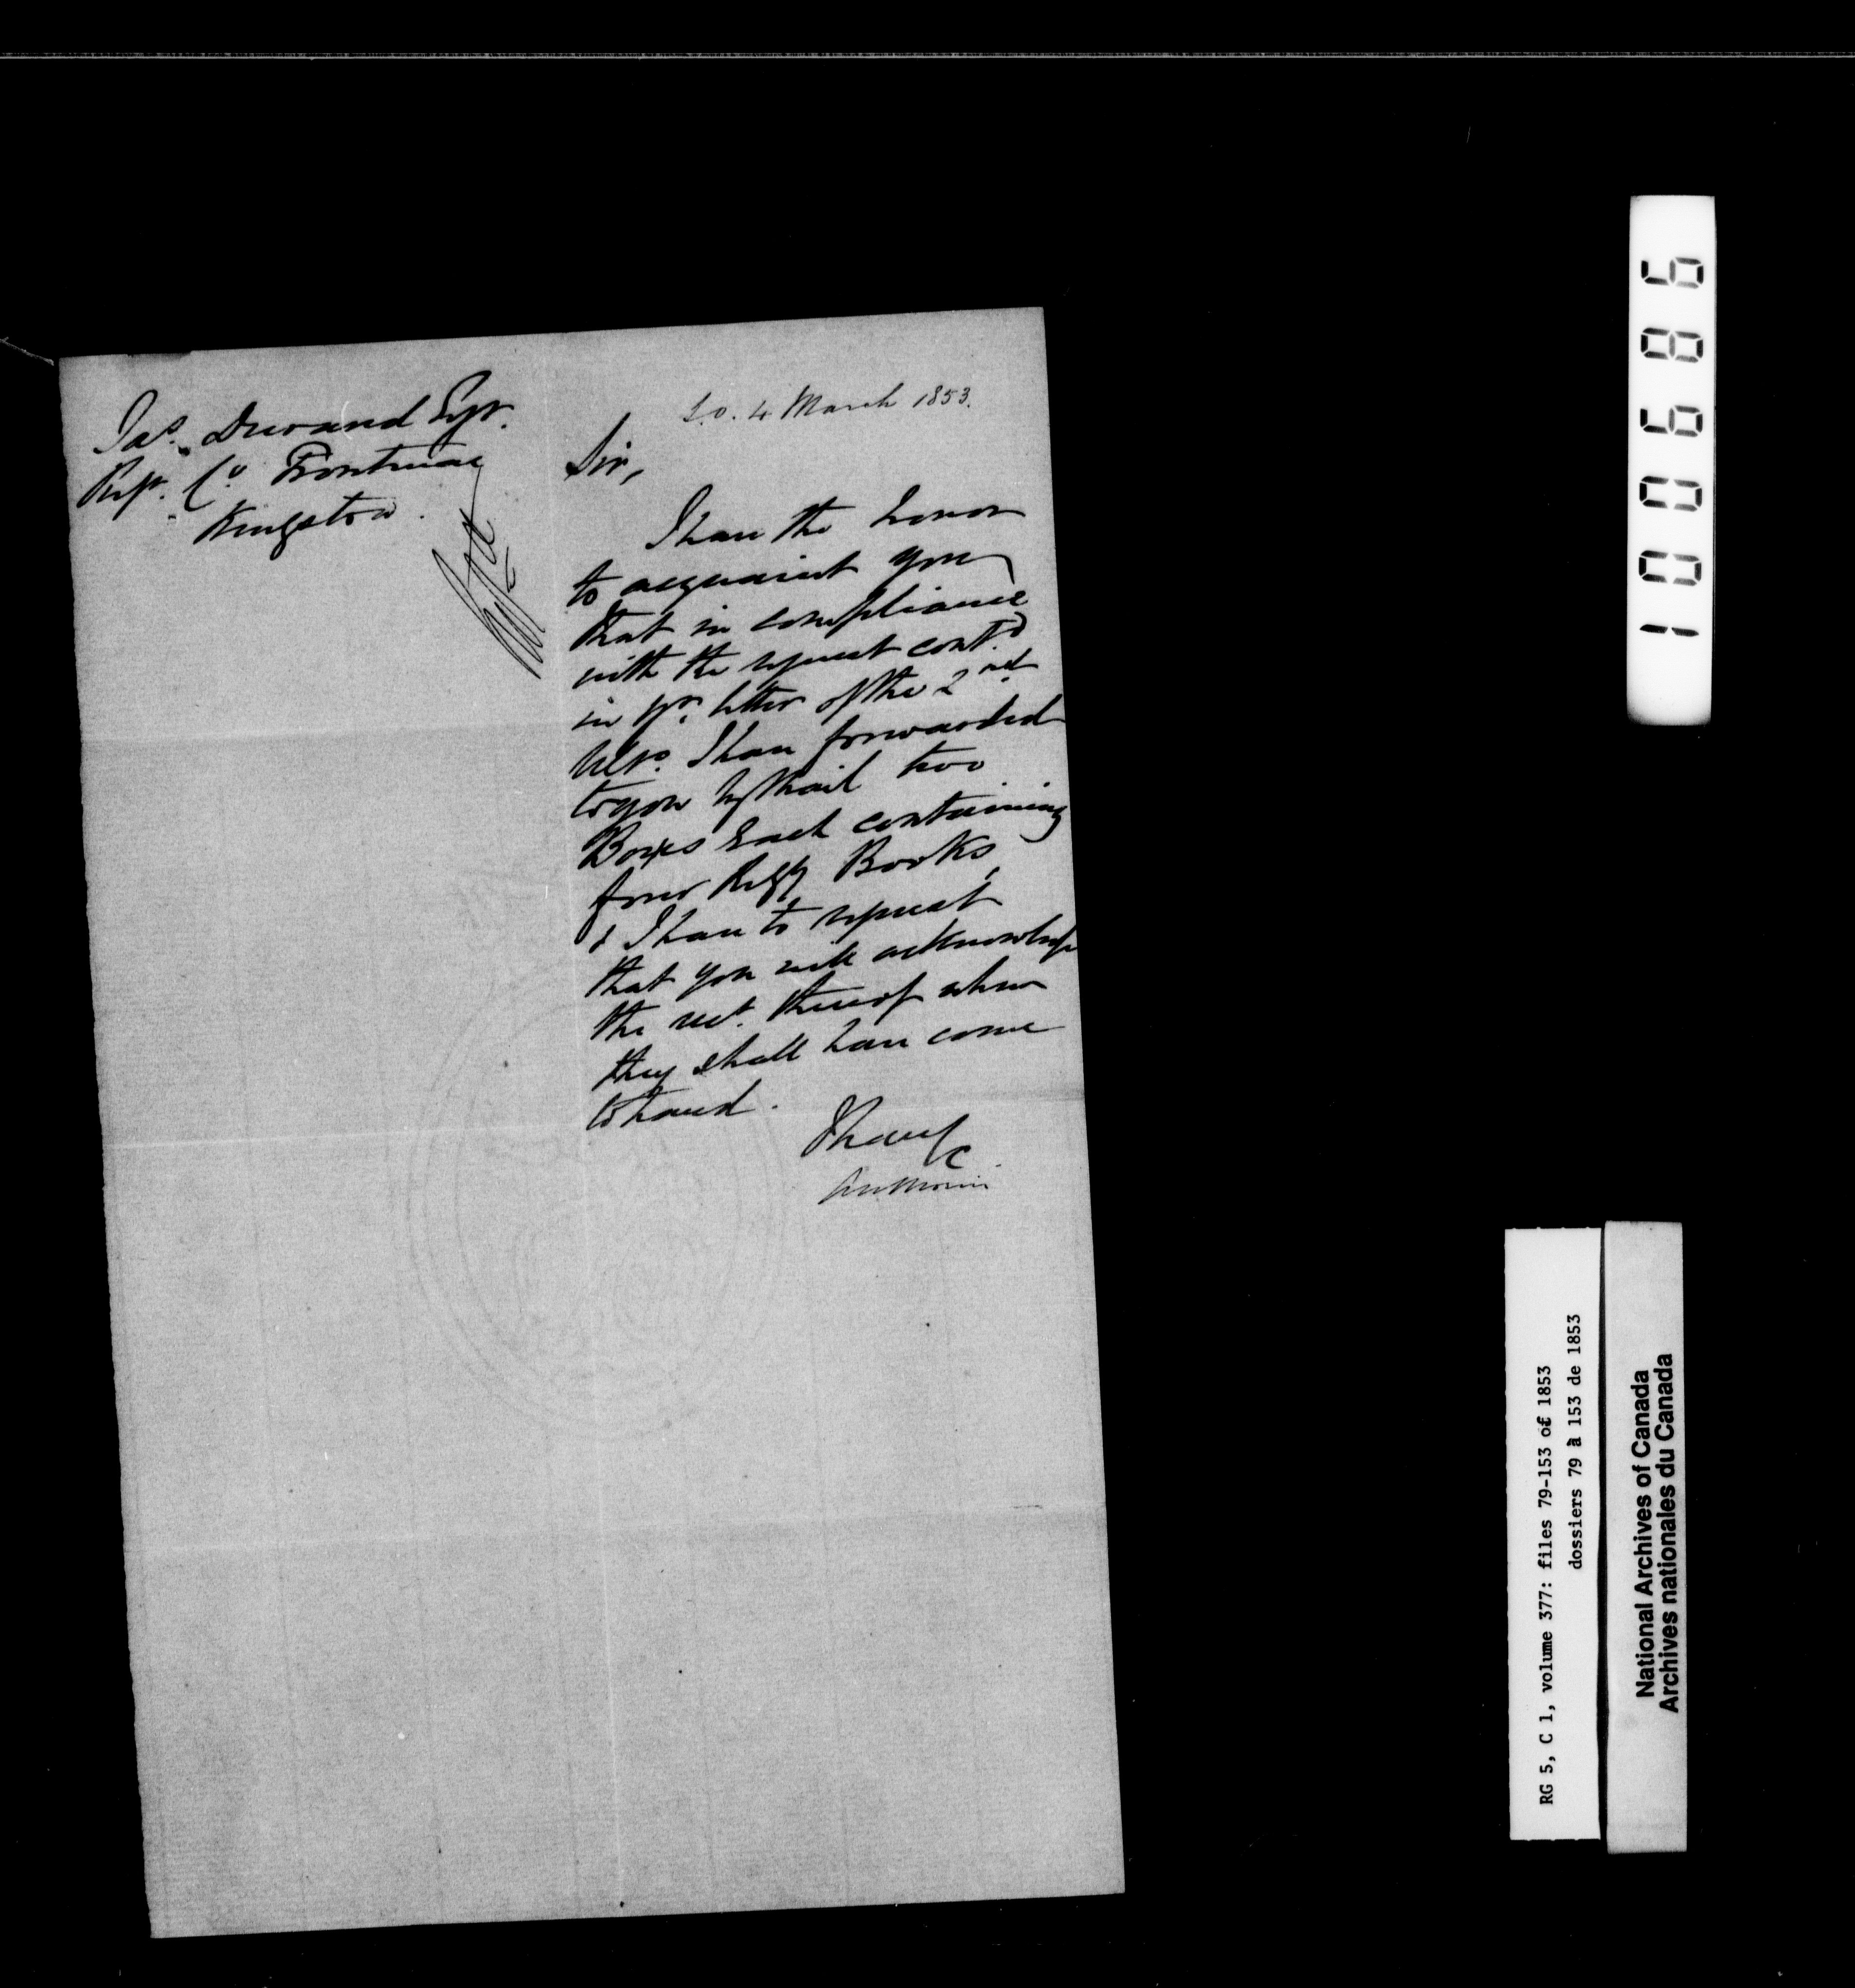 Jas. Durand Esqr.
Regr. Co. Frontenac
Kingston.
S.O. 4 March 1853.
Sir,
I have the honor
to acquaint you
that in compliance
with the request contd.
in yr. letter of the 2nd
I have forwarded
to you by Mail two
Boxes each containing
four Regy Books,
& I have to request
that you will acknowledge
the rect. thereof when
they shall have come
to hand.
I have &c
AN Morin
100686
RG 5, C 1, volume 377: files 79-153 of 1853
dossiers 79 à 153 de 1853
National Archives of Canada
Archives nationales du Canada